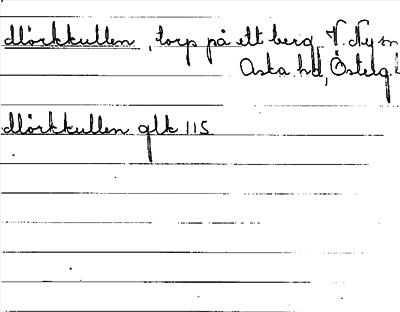 Mörkkullen, torp på ett berg V. Ny sn
Aska hd, Österg.
Mörkkullen glk 115